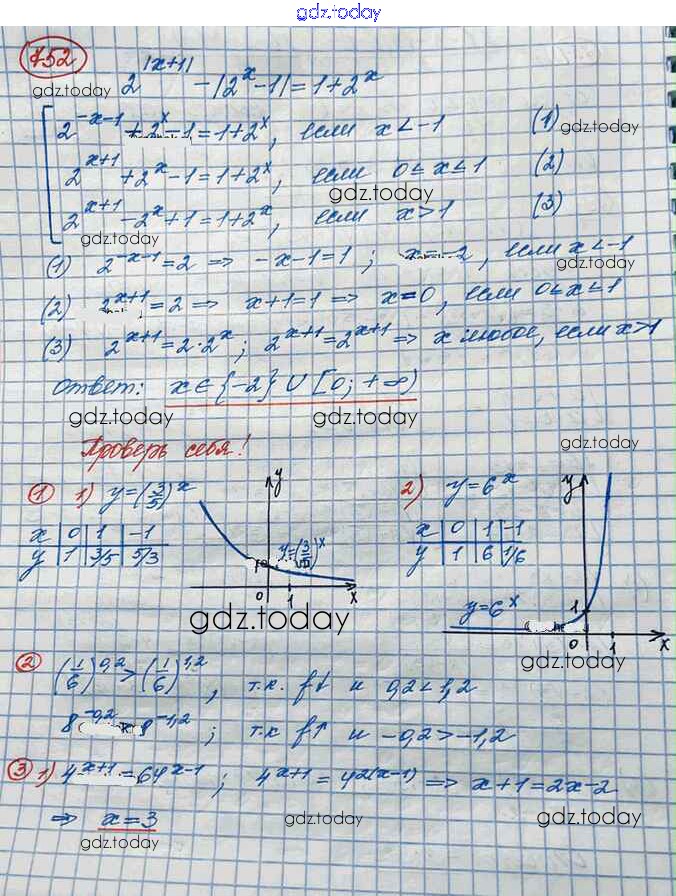 gdz.today
752
2^{|x+1|} - |2^x - 1| = 1 + 2^x
gdz.today
2^{-x-1} + 2^x - 1 = 1 + 2^x, если x < -1 (1)
gdz.today
2^{x+1} + 2^x - 1 = 1 + 2^x, если 0 ≤ x ≤ 1 (2)
gdz.today
2^{x+1} - 2^x + 1 = 1 + 2^x, если x > 1 (3)
gdz.today
(1) 2^{-x-1} = 2 ⇒ -x-1 = 1; x = -2, если x < -1
gdz.today
(2) 2^{x+1} = 2 ⇒ x+1 = 1 ⇒ x = 0, если 0 ≤ x ≤ 1
(3) 2^{x+1} = 2·2^x; 2^{x+1} = 2^{x+1} ⇒ x любое, если x > 1
ответ: x ∈ {-2} ∪ [0; +∞)
gdz.today gdz.today
Проверь себя! gdz.today
1 1) y = (3/5)^x
x 0 1 -1
y 1 3/5 5/3
gdz.today
y
1
y = (3/5)^x
0 1 x
gdz.today
2) y = 6^x
x 0 1 -1
y 1 6 1/6
gdz.today
y
y = 6^x
1
0 1 x
2 (1/6)^{0,2} > (1/6)^{1,2}, т.к. f↓ и 0,2 < 1,2
gdz.today
8^{-0,2} 8^{-1,2}; т.к f↑ и -0,2 > -1,2
gdz.today
3 1) 4^{x+1} = 64^{x-1}; 4^{x+1} = 4^{2(x-1)} ⇒ x+1 = 2x-2
⇒ x = 3
gdz.today gdz.today gdz.today